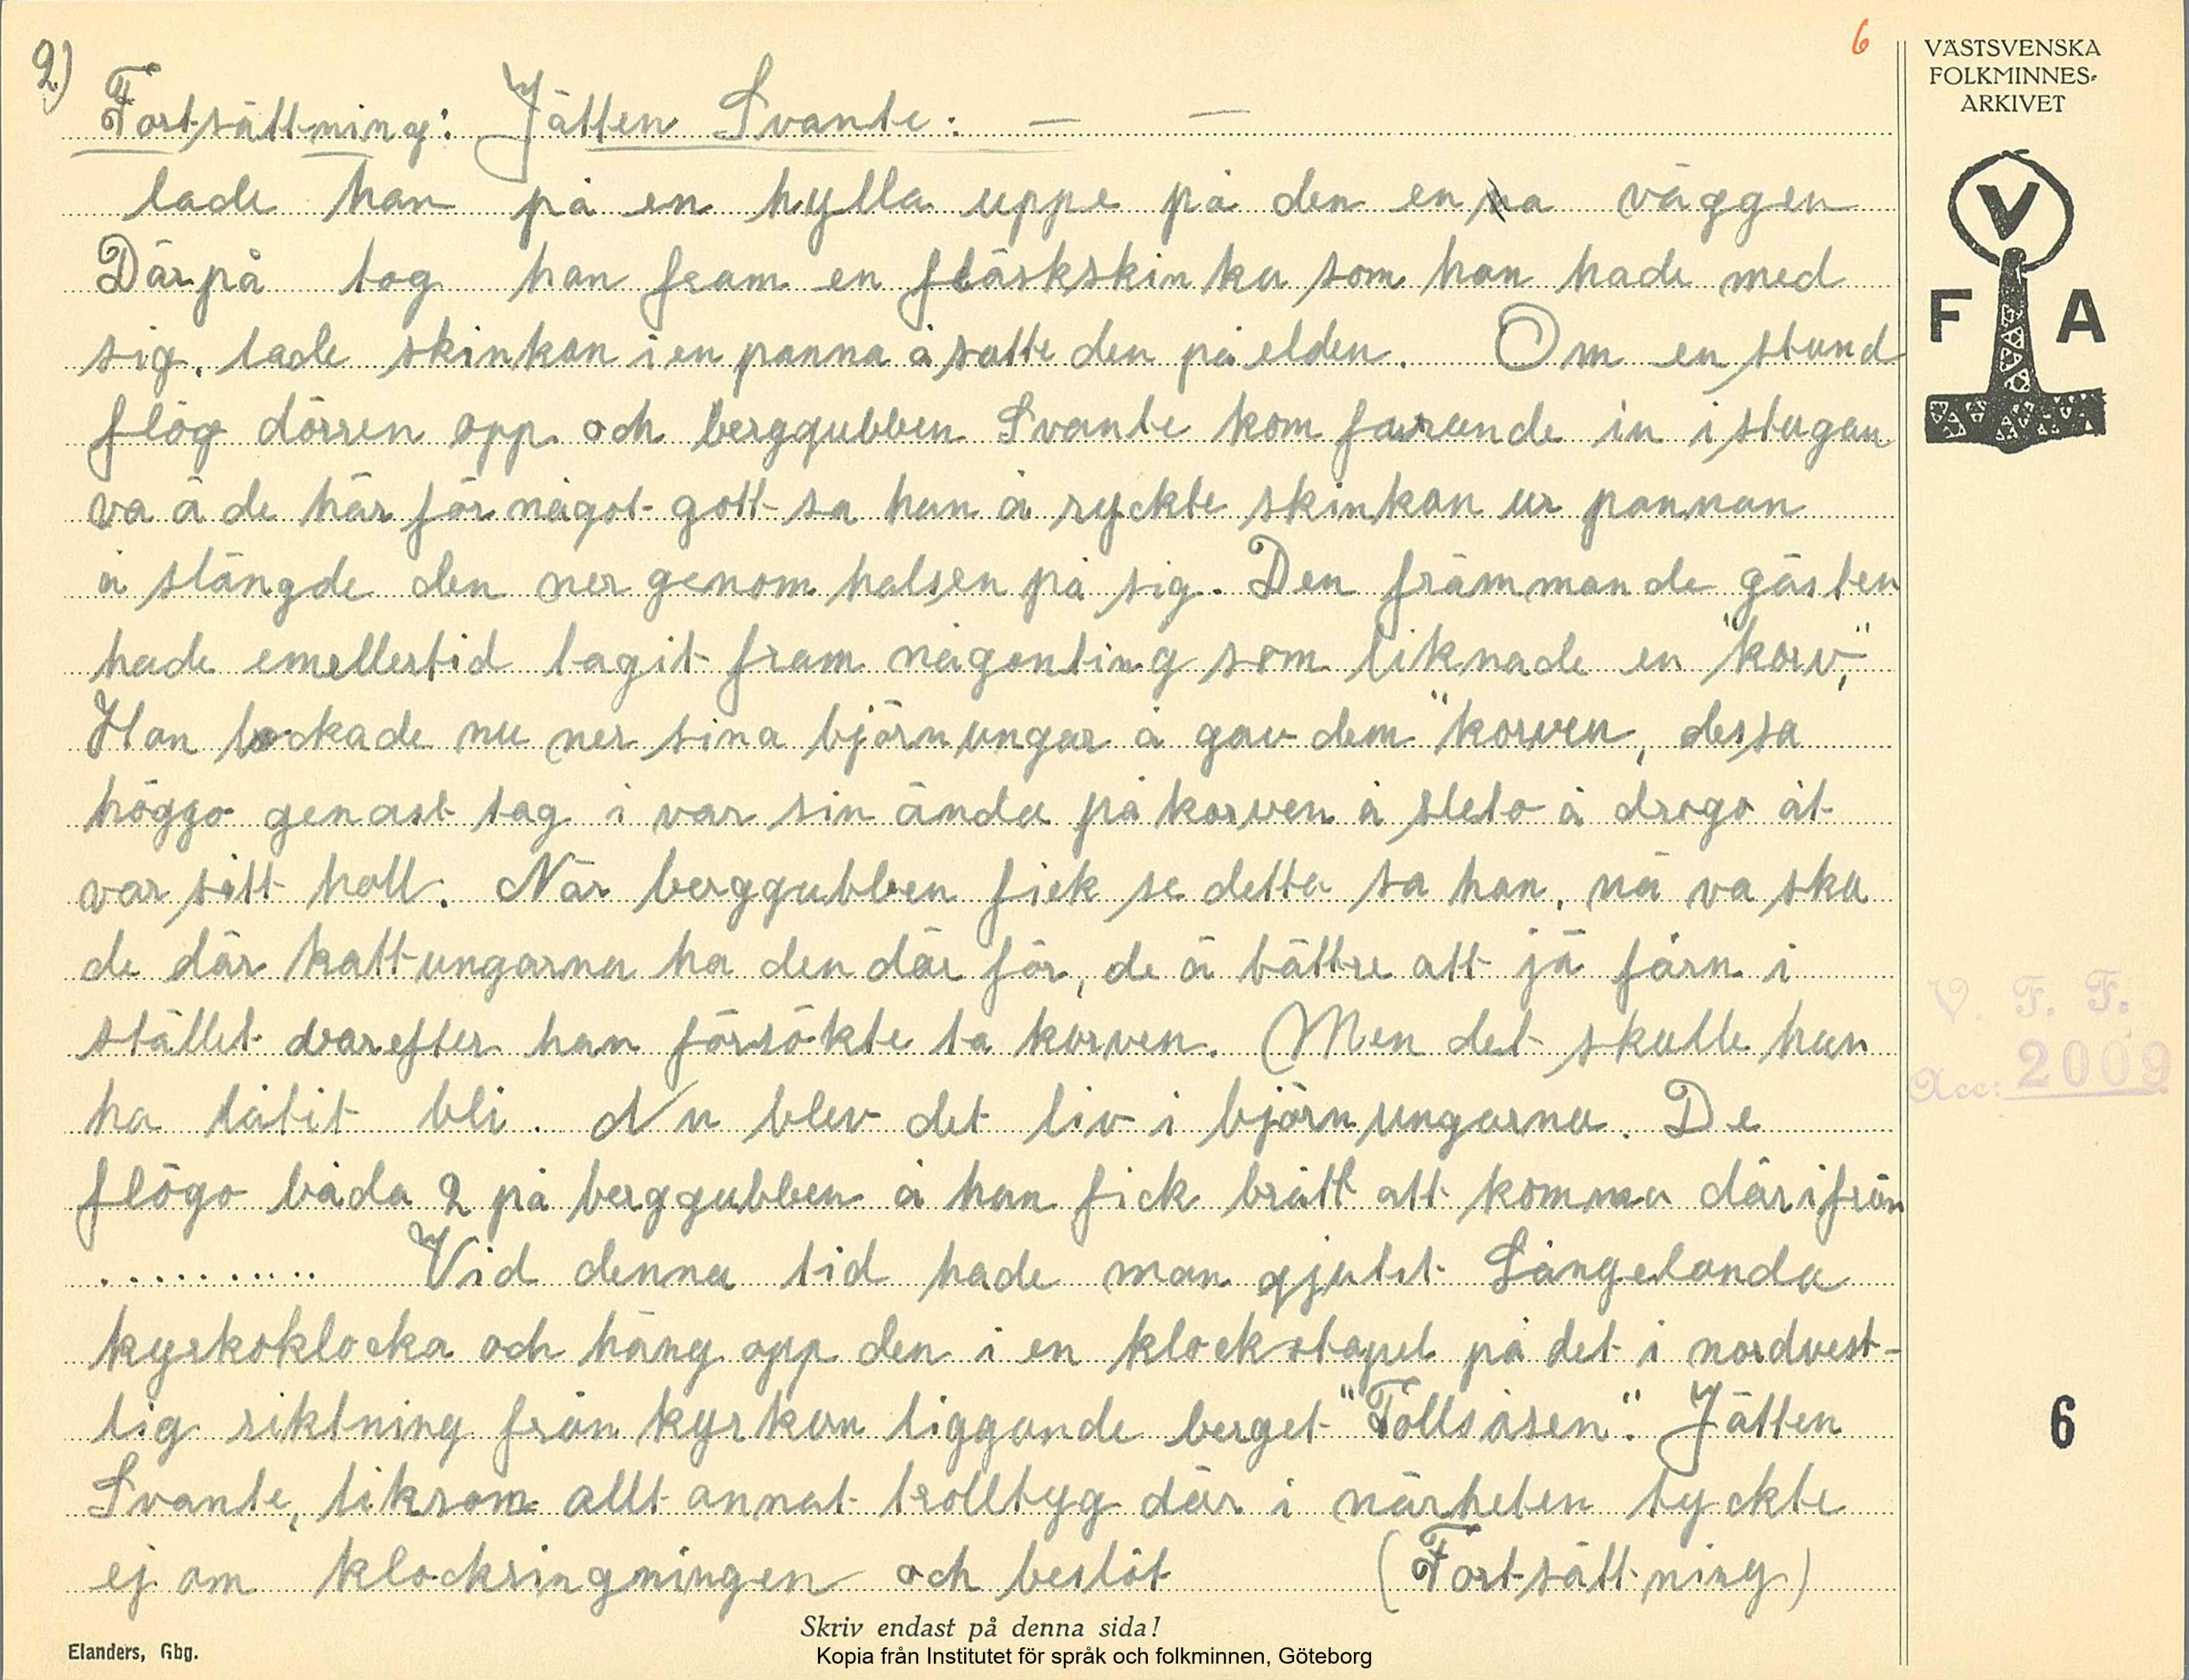 2)
6
VÄSTSVENSKA
FOLKMINNES-
ARKIVET
V
F A
Fortsättning: Jätten Svante: — —
lade han på en hylla uppe på den enna väggen
Därpå tog han fram en fläskskinka som han hade med
sig. lade skinkan i en panna å satte den på elden. Om en stund
flög dörren opp och berggubben Svante kom farande in i stugan
va ä de här för något gott sa han å ryckte skinkan ur pannan
å slängde den ner genom halsen på sig. Den främmande gästen
hade emellertid tagit fram någonting som liknade en "korv,"
Han lockade nu ner sina björnungar å gav dem "korven, dessa
höggo genast tag i var sin ända på korven å sleto å drogo åt
var sitt holl. När berggubben fick se detta sa han, nä va ska
de där kattungarna ha den där för, de ä bättre att jä fårn i
stället varefter han försökte ta korven. Men det skulle han
ha låtit bli. Nu blev det liv i björnungarna. De
flögo båda 2 på berggubben å han fick brått att komma därifrån
........... Vid denna tid hade man gjutet Långelanda
kyrkoklocka och häng opp den i en klockstapel på det i nordvest-
lig riktning från kyrkan liggande berget "Tollsåsen". Jätten
Svante, liksom allt annat trolltyg där i närheten tyckte
ej om klockringningen och beslöt (Fortsättning)
V. F. F.
Acc: 2009
6
Skriv endast på denna sida!
Elanders, Gbg.
Kopia från Institutet för språk och folkminnen, Göteborg